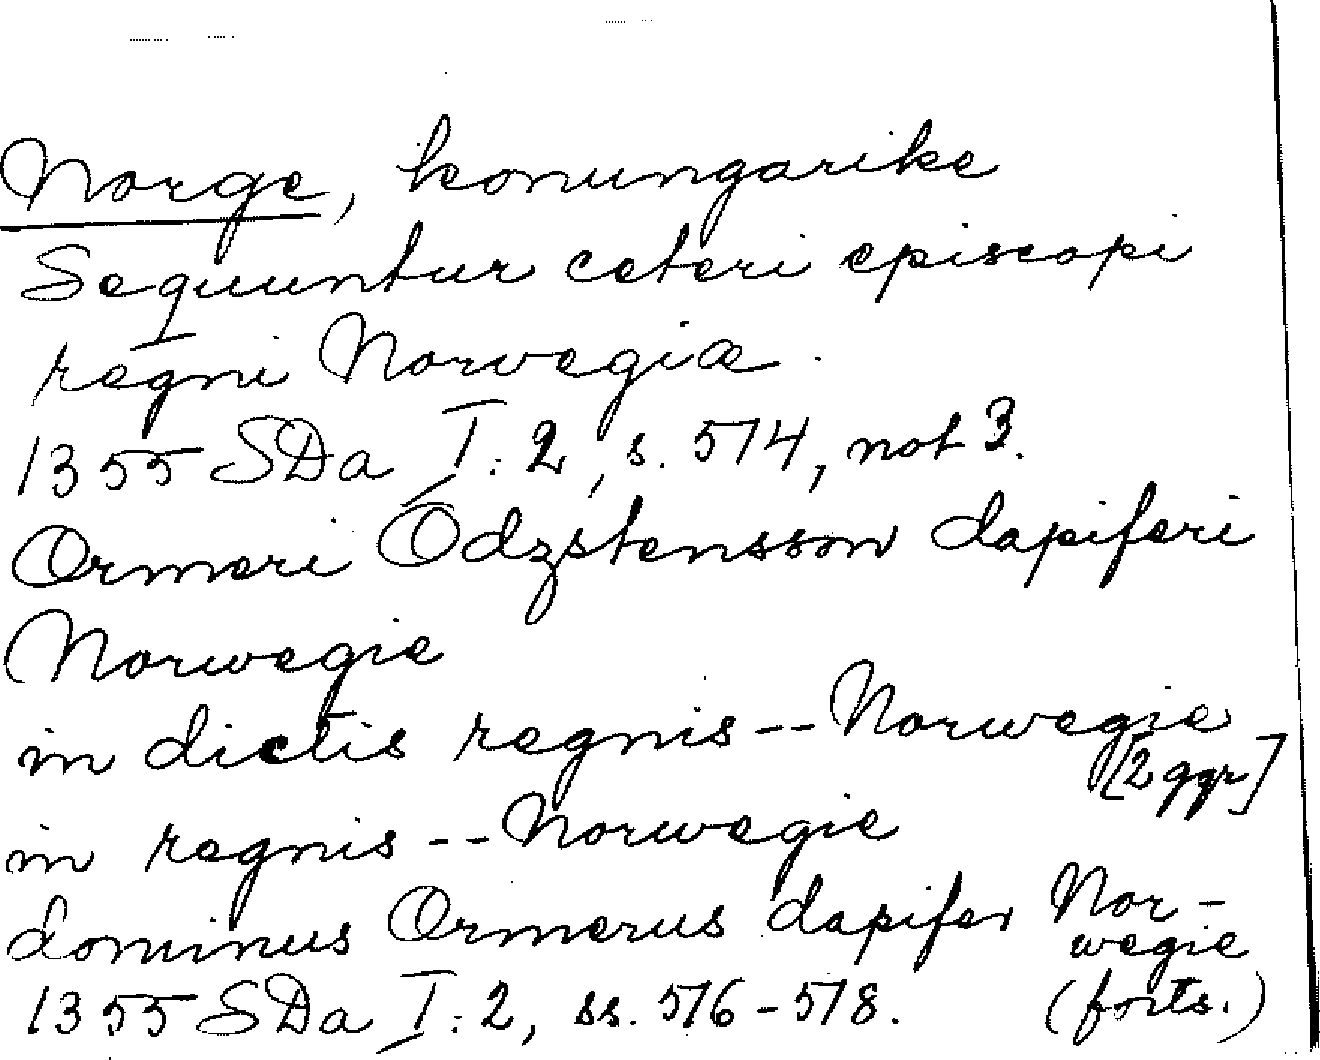 Norge, konungarike
Sequuntur ceteri episcopi
regni Norwegiæ.
1355 SDa I:2, s. 574, not 3.
Ormeri Ödzstensson dapiferi
Norwegie
in dictis regnis -- Norwegie
[2 ggr]
in regnis -- Norwegie
dominus Ormerus dapifer Nor-
wegie
1355 SDa I:2, ss. 576-578. (forts.)